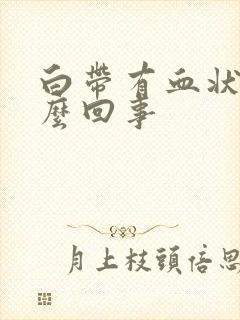 白帶有血狀
麼回事
月上枝頭倍思